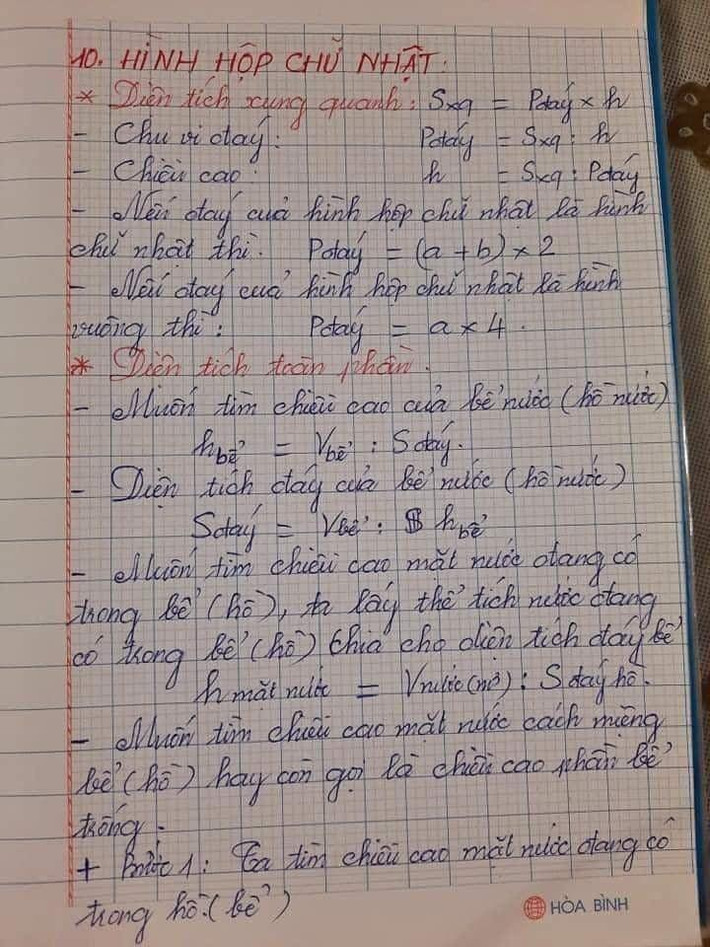 10. HÌNH HỘP CHỮ NHẬT.
* Diện tích xung quanh: Sxq = Pđáy × h
- Chu vi đáy: Pđáy = Sxq : h
- Chiều cao: h = Sxq : Pđáy
- Nếu đáy của hình hộp chữ nhật là hình
chữ nhật thì. Pđáy = (a + b) × 2
- Nếu đáy của hình hộp chữ nhật là hình
vuông thì: Pđáy = a × 4.
* Diện tích toàn phần.
- Muốn tìm chiều cao của bể nước (hồ nước)
h bể = V bể : S đáy.
- Diện tích đáy của bể nước (hồ nước)
S đáy = V bể : h bể
- Muốn tìm chiều cao mặt nước đang có
trong bể (hồ), ta lấy thể tích nước đang
có trong bể (hồ) chia cho diện tích đáy bể
h mặt nước = V nước : S đáy hồ.
- Muốn tìm chiều cao mặt nước cách miệng
bể (hồ) hay còn gọi là chiều cao phần bể
trống.
+ Bước 1: Ta tìm chiều cao mặt nước đang có
trong hồ. (bể)
HÒA BÌNH